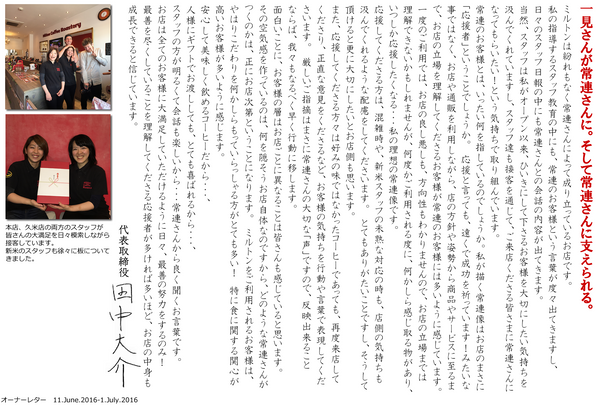 一見さんが常連さんに。そして常連さんに支えられる。
ミルトンは紛れもなく常連さんによって成り立っているお店です。
私の指導するスタッフ教育の中にも、常連のお客様という言葉が度々出てきますし、
日々のスタッフ日報の中にも常連さんとの会話の内容が出てきます。
当然、スタッフは私がオープン以来、ひいきにして下さるお客様を大切にしたい気持ちを
汲んでくれていますし、スタッフ達も接客を通して、ご来店くださる皆さまに常連さんに
なってもらいたい！という気持ちで取り組んでいます。
常連のお客様とは、いったい何を指しているのでしょうか。私が描く常連像はお店のまさに
「応援者」ということでしょうか。応援と言っても、遠くで成功を祈っています！みたいな
事ではなく、お店や通販を利用しながら、店の方針や姿勢から商品やサービスに至るま
で、お店の立場を理解してくださるお客様が常連のお客様には多いように感じています。
一度のご利用では、お店の良し悪しも、方向性もわかりませんので、お店の立場までは
理解できないかもしれませんが、何度かご利用される度に、何かしら感じ取る物があり、
いつしか応援したくなる・・・私の理想の常連像です。
応援してくださる方は、混雑時や、新米スタッフの未熟な対応の時も、店側の気持ちも
汲んでくれるような配慮をしてくださいます。とてもありがたいことですし、そうして
頂けると更に大切にしたいとお店側も思います。
また、応援してくださる方々は好みの味ではなかったコーヒーであっても、再度来店して
くださり、正直な意見をくださるなど、お客様の気持ちを行動や言葉で表現してくだ
さいます。厳しいご指摘はまさに常連さんの大切な「声」ですので、反映出来ること
ならば、我々もなるべく早く行動に移します。
面白いことに、お客様の層はお店ごとに異なることは皆さんも感じていると思います。
その空気感を作っているのは、何を隠そうお店自体なのですから、どのような常連さんが
つくのかは、正にお店次第ということになります。ミルトンをご利用されるお客様は、
やはりこだわりを何かしらもっていらっしゃる方がとても多い！特に食に関する関心が
高いお客様が多いように感じます。
安心して美味しく飲めるコーヒーだから・・・
人様にギフトでお渡ししても、とても喜ばれるから・・・
スタッフの方が明るくて会話も楽しいから・・・常連さんから良く聞くお言葉です。
お店は全てのお客様に大満足していただけるように日々、最善の努力をするのみ！
最善を尽くしていることを理解してくださる応援者が多ければ多いほど、お店の中身も
成長できると信じています。
代表取締役 田中大介
本店、久米店の両方のスタッフが
皆さんの大満足を日々模索しながら
接客しています。
新米のスタッフも徐々に板について
きました。
オーナーレター 11.June.2016-1.July.2016